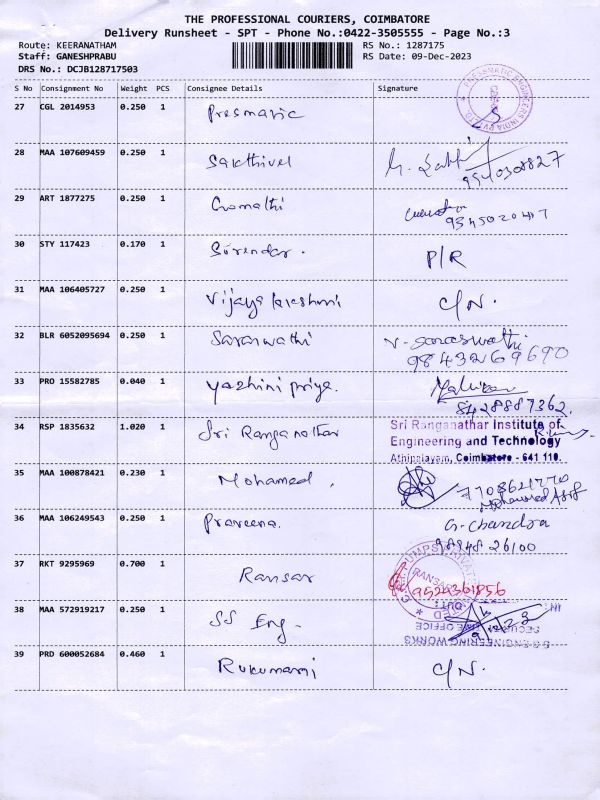 THE PROFESSIONAL COURIERS, COIMBATORE
Delivery Runsheet - SPT - Phone No.:0422-3505555 - Page No.:3
Route: KEERANATHAM RS No.: 1287175
Staff: GANESHPRABU RS Date: 09-Dec-2023
DRS No.: DCJB128717503
S No Consignment No Weight PCS Consignee Details Signature
27 CGL 2014953 0.250 1 Presmatic
PRESSMATIC ENGINEERS INDIA PVT LTD
28 MAA 107609459 0.250 1 Sakthivel
9940308827
29 ART 1877275 0.250 1 Gomathi
9345020417
30 STY 117423 0.170 1 Surendar. P/R
31 MAA 106405727 0.250 1 Vijaya lakshmi C/N.
32 BLR 6052095694 0.250 1 Saraswathi V. Saraswathi
9843269690
33 PRO 15582785 0.040 1 Yazhini priya.
8428887362.
34 RSP 1835632 1.020 1 Sri Ranganathar Sri Ranganathar Institute of
Engineering and Technology
Athipalayam, Coimbatore - 641 110.
35 MAA 100878421 0.230 1 Mohamed. 7708621770
Mohamed Asif
36 MAA 106249543 0.250 1 Praveena. G. Chandra
98948 26100
37 RKT 9295969 0.700 1 Ransar
PUMPS PRIVATE
RANSAR
9524361856
38 MAA 572919217 0.250 1 SS Eng.
IN:
OUT:
SECURITY OFFICE
SS ENGINEERING WORKS
39 PRD 600052684 0.460 1 Rukumani C/N.